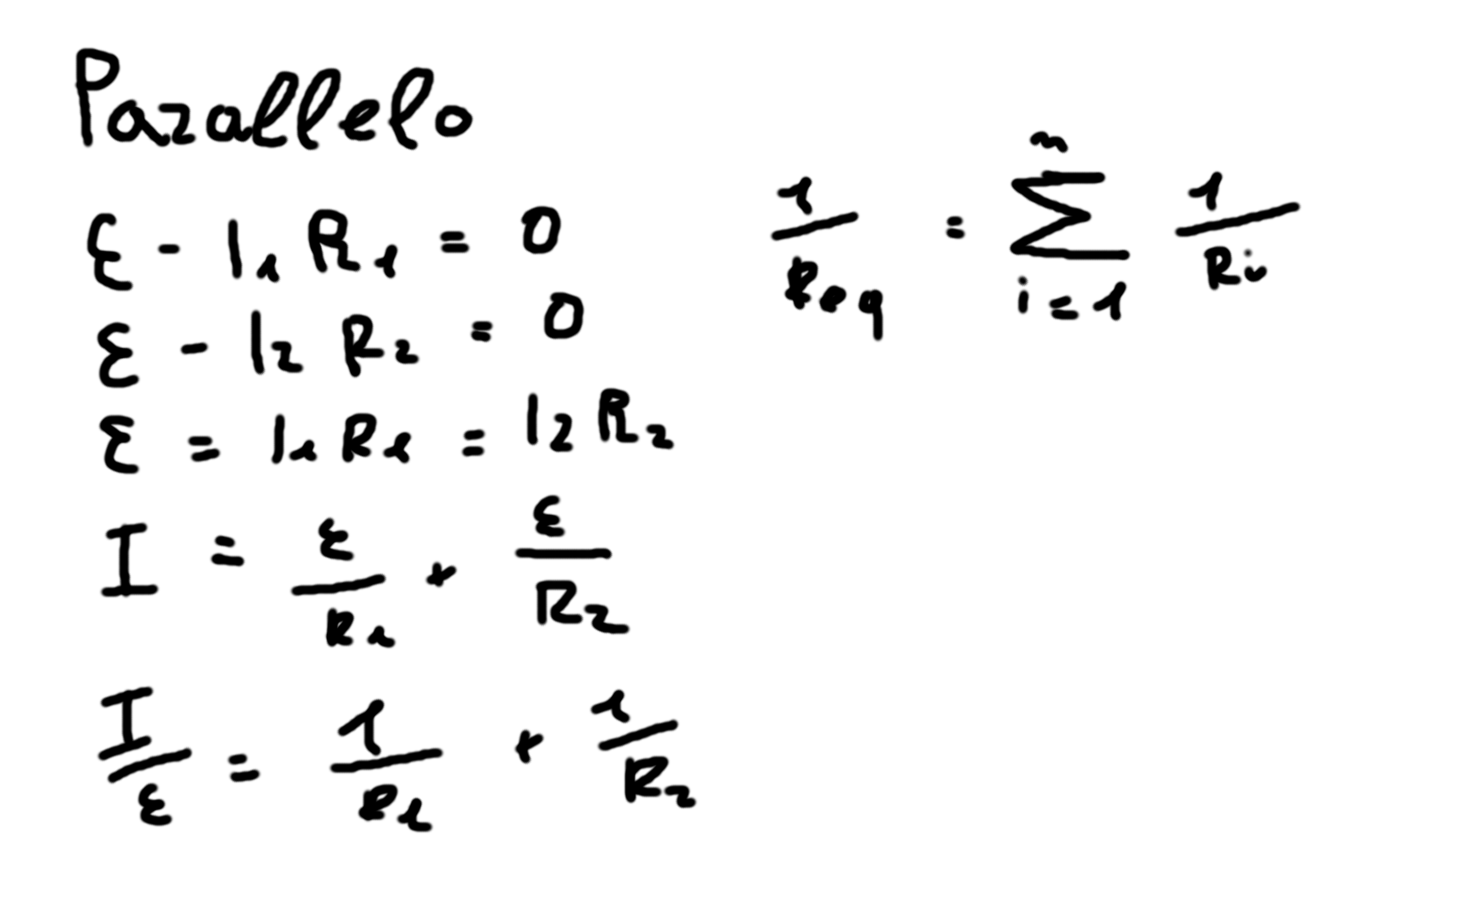 Parallelo
ε - I₁ R₁ = 0
ε - I₂ R₂ = 0
ε = I₁ R₁ = I₂ R₂
I = ε/R₁ + ε/R₂
I/ε = 1/R₁ + 1/R₂
1/Req = ∑ⁿᵢ₌₁ 1/Rᵢ